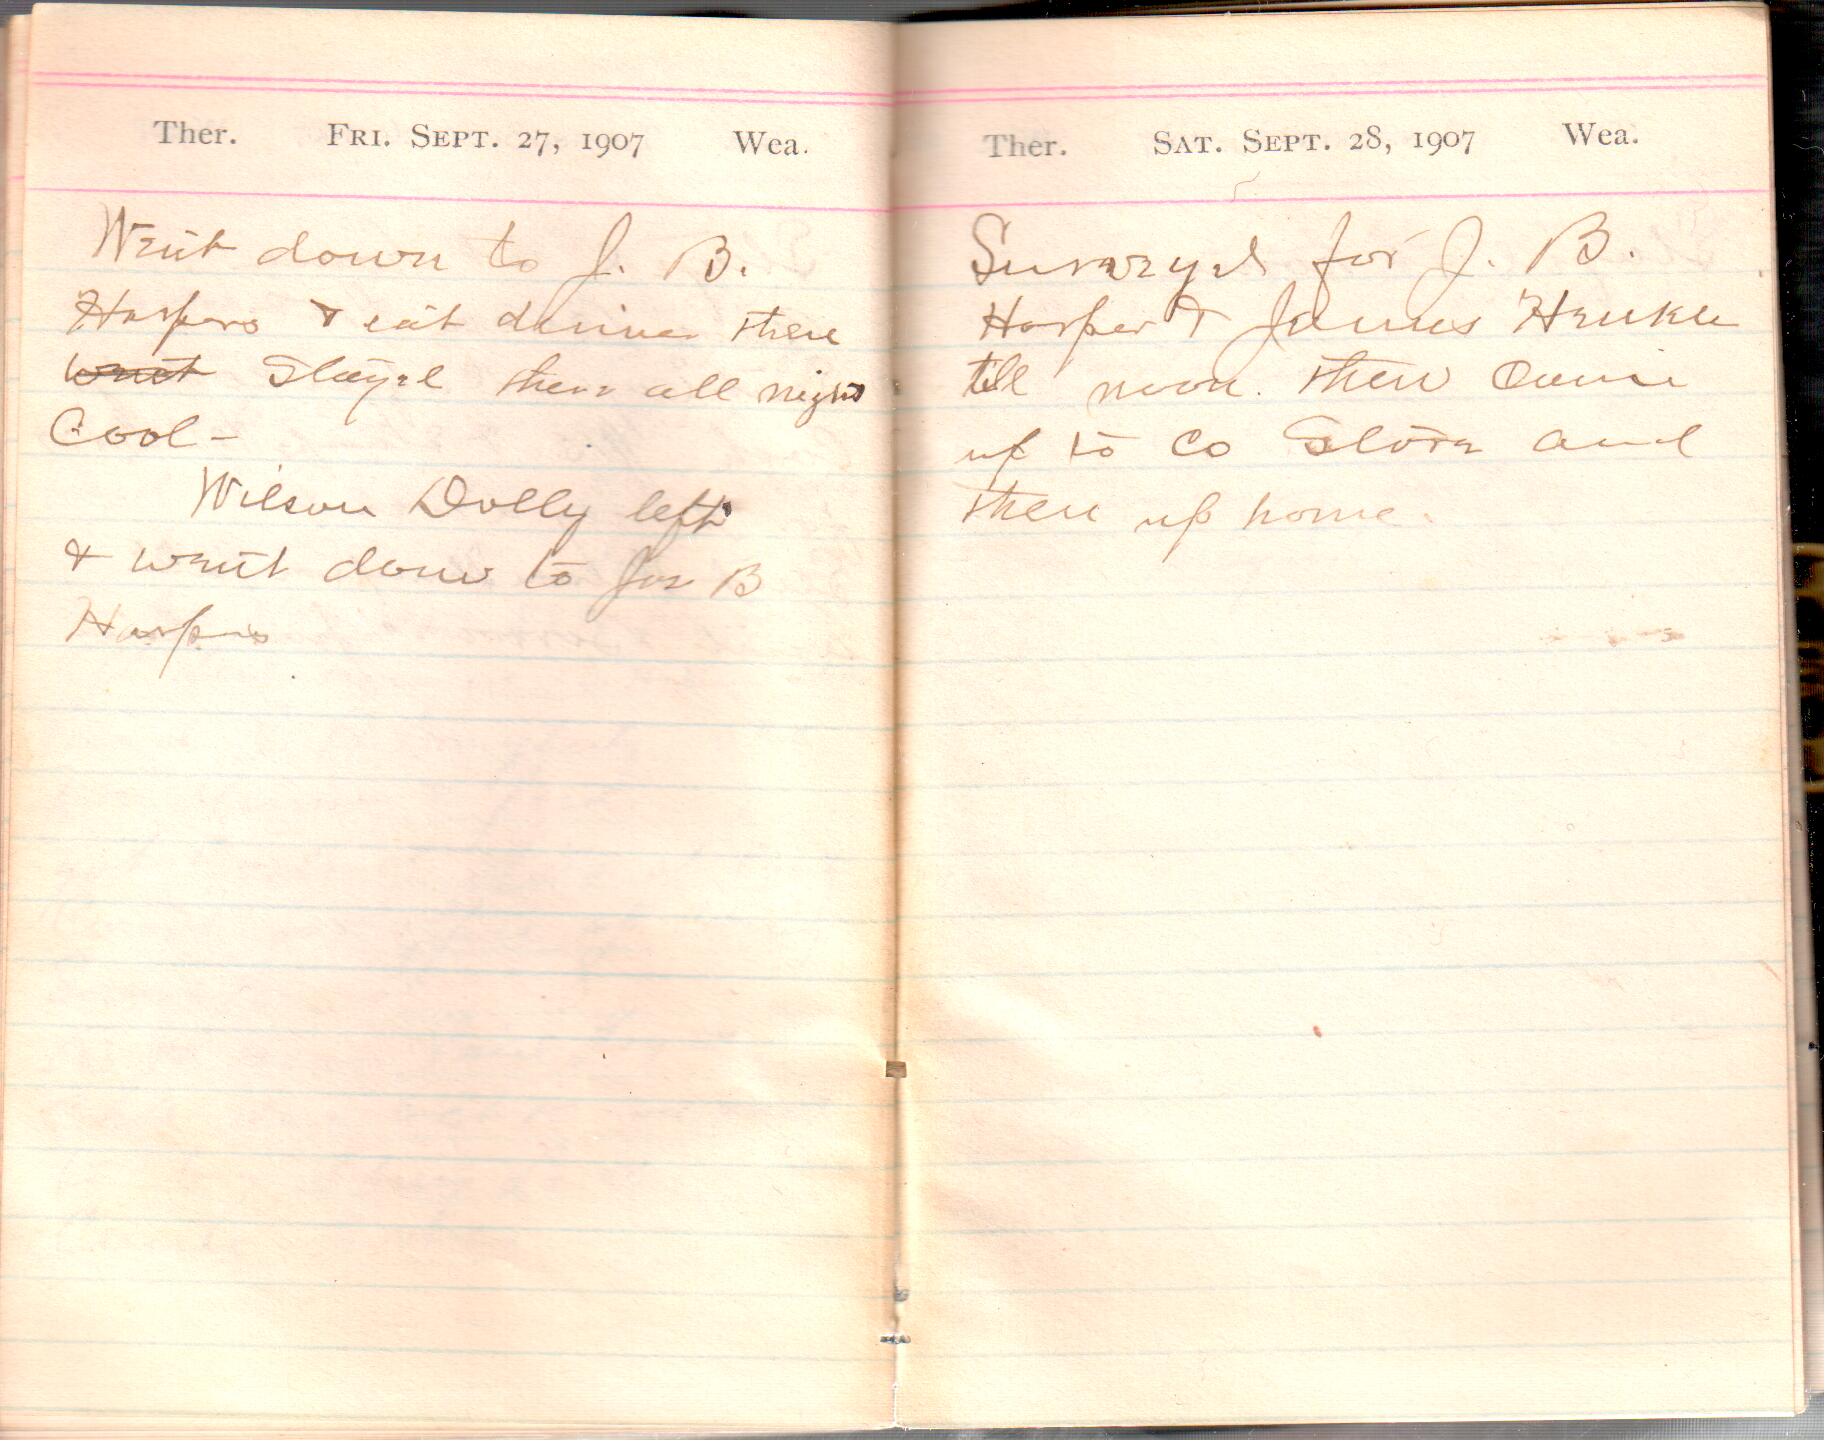 Ther. FRI. SEPT. 27, 1907 Wea.
Went down to J. B.
Harpers & eat dinner there
went Stayed there all night
Cool -
Wilson Dolly left
& went down to Joe B
Harpers
Ther. SAT. SEPT. 28, 1907 Wea.
Surveyed for J. B.
Harper & James Henkle
till noon. then came
up to Co Store and
then up home.